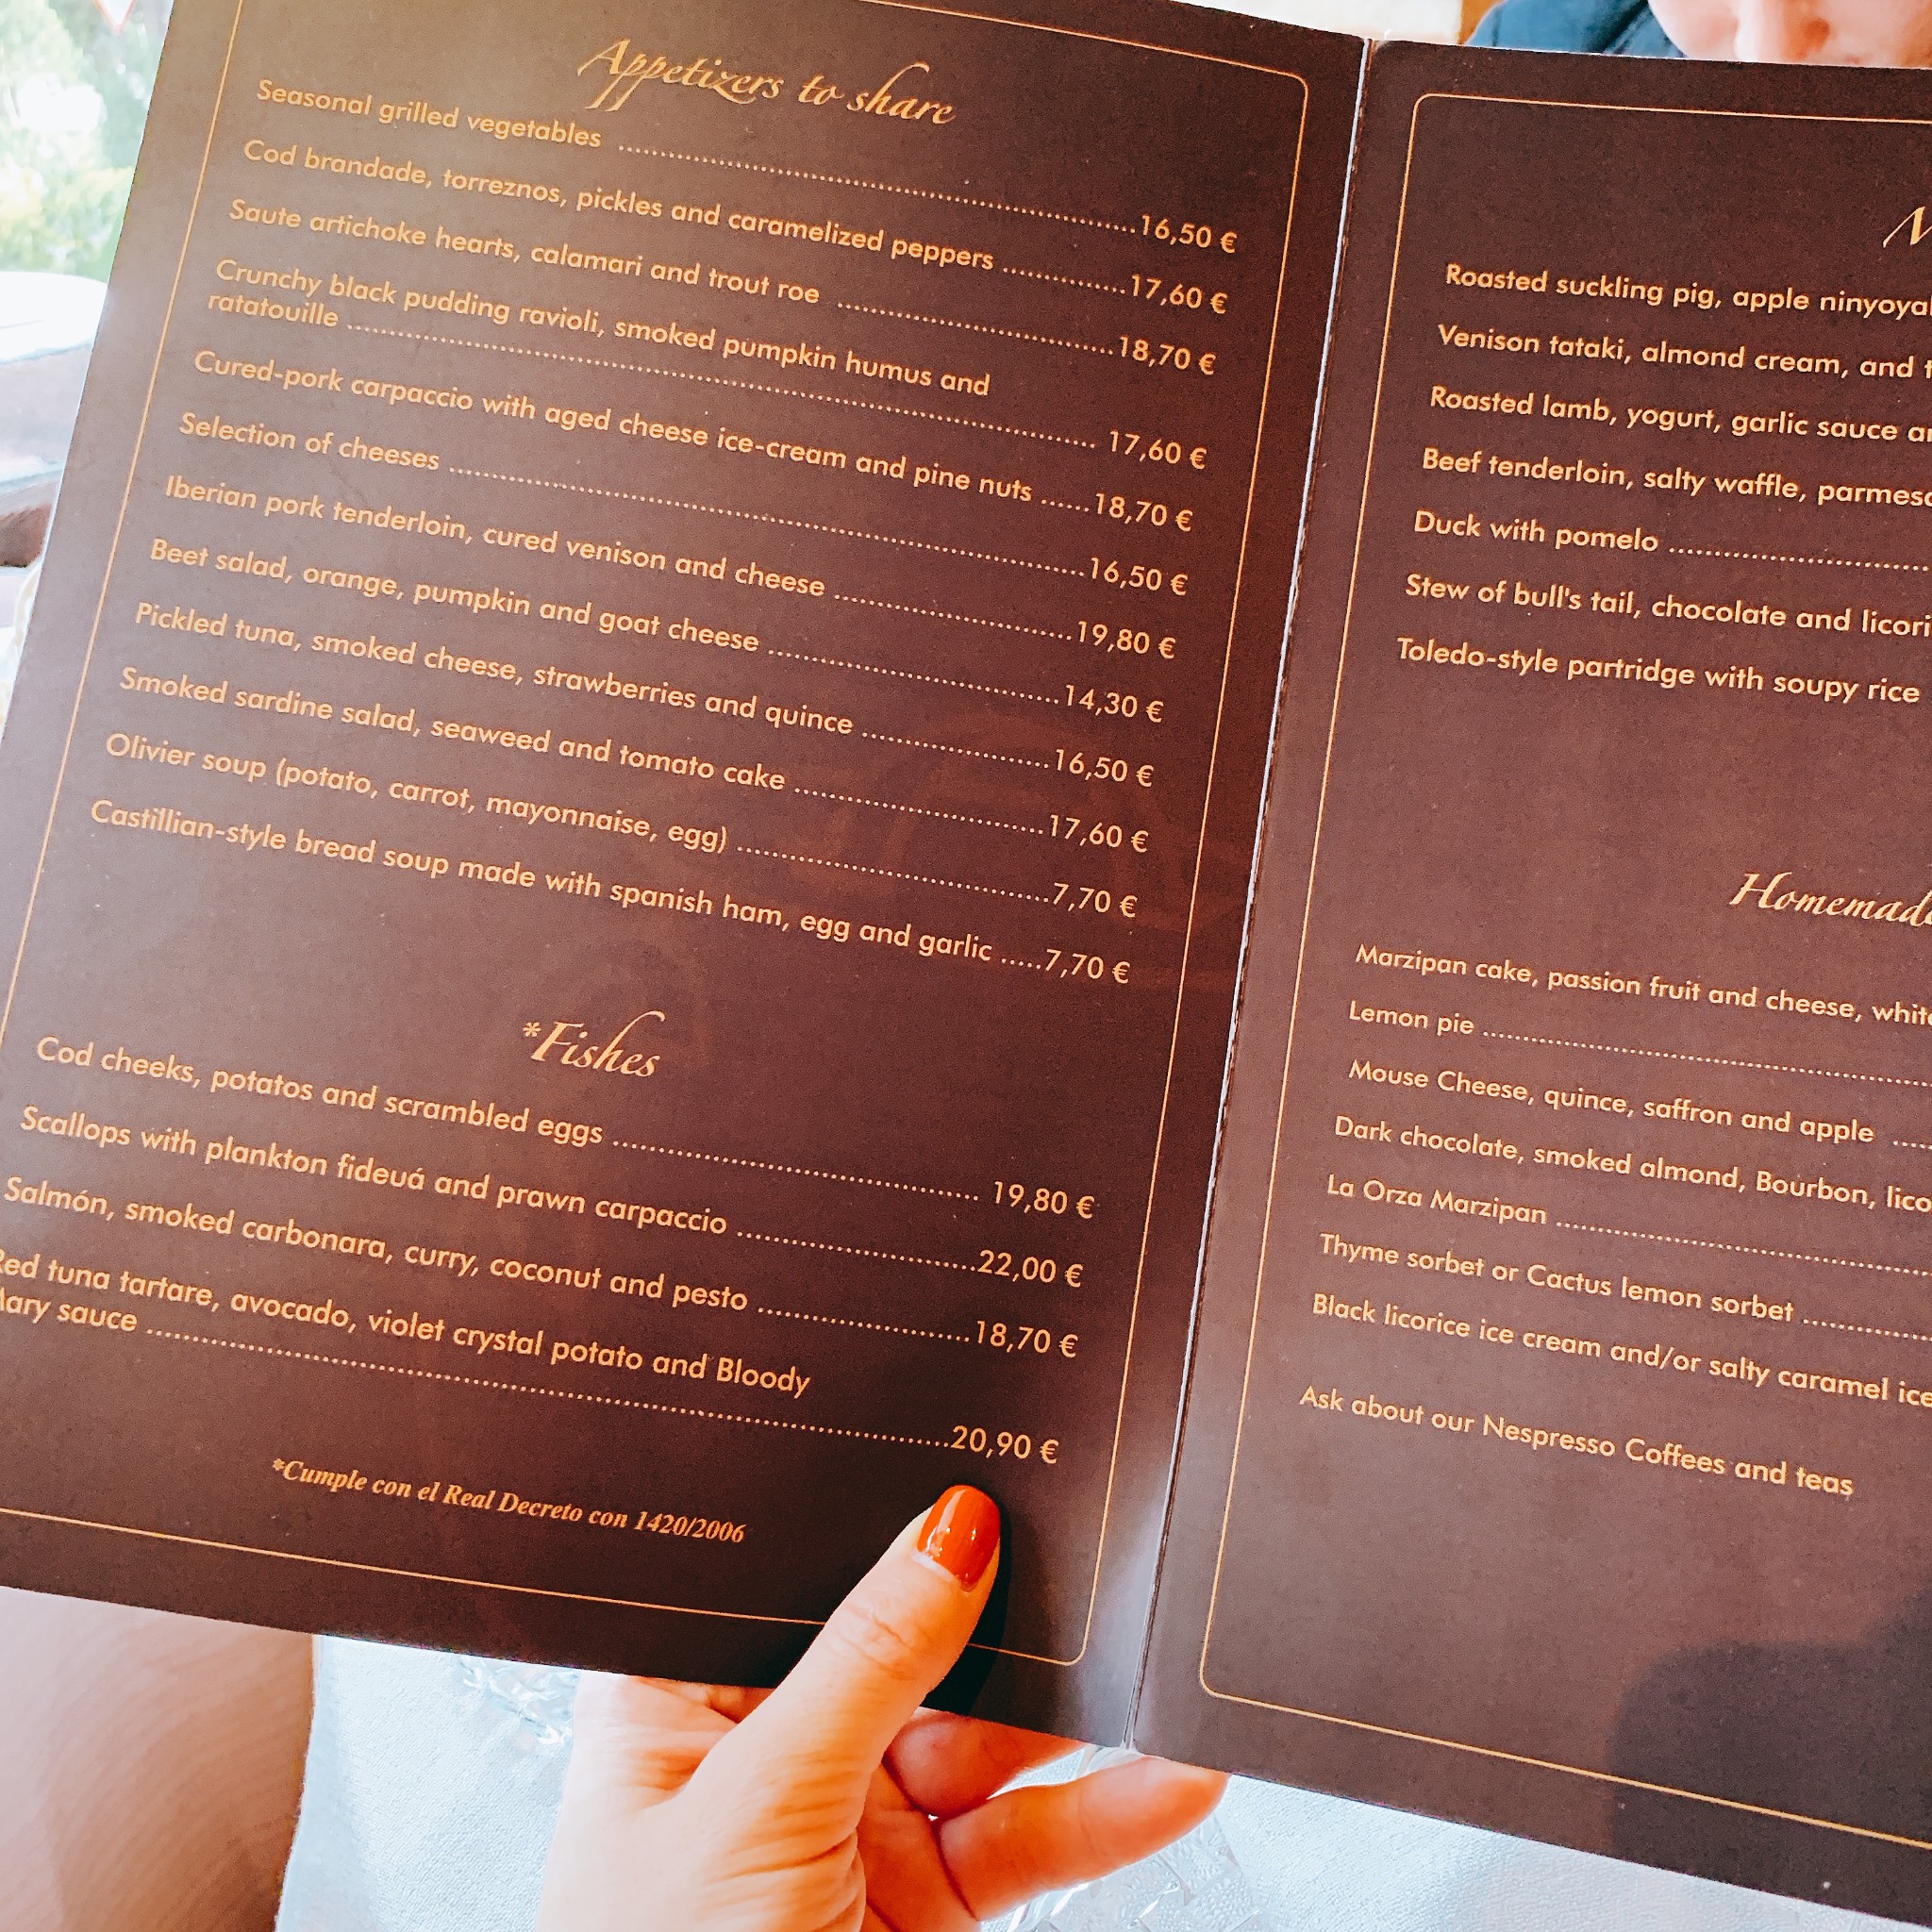 Appetizers to share
Seasonal grilled vegetables ........ 16,50 €
Cod brandade, torreznos, pickles and caramelized peppers ........ 17,60 €
Saute artichoke hearts, calamari and trout roe ........ 18,70 €
Crunchy black pudding ravioli, smoked pumpkin humus and
ratatouille ........ 17,60 €
Cured-pork carpaccio with aged cheese ice-cream and pine nuts ...... 18,70 €
Selection of cheeses ........ 16,50 €
Iberian pork tenderloin, cured venison and cheese ........ 19,80 €
Beet salad, orange, pumpkin and goat cheese ........ 14,30 €
Pickled tuna, smoked cheese, strawberries and quince ........ 16,50 €
Smoked sardine salad, seaweed and tomato cake ........ 17,60 €
Olivier soup (potato, carrot, mayonnaise, egg) ........ 7,70 €
Castillian-style bread soup made with spanish ham, egg and garlic ..... 7,70 €
*Fishes
Cod cheeks, potatos and scrambled eggs ........ 19,80 €
Scallops with plankton fideuá and prawn carpaccio ........ 22,00 €
Salmón, smoked carbonara, curry, coconut and pesto ........ 18,70 €
Red tuna tartare, avocado, violet crystal potato and Bloody
Mary sauce ........ 20,90 €
*Cumple con el Real Decreto con 1420/2006
Roasted suckling pig, apple
Venison tataki, almond cream, and
Roasted lamb, yogurt, garlic sauce
Beef tenderloin, salty waffle,
Duck with pomelo ........
Stew of bull's tail, chocolate and
Toledo-style partridge with soupy rice
Marzipan cake, passion fruit and cheese,
Lemon pie ........
Mouse Cheese, quince, saffron and apple ....
Dark chocolate, smoked almond, Bourbon,
La Orza Marzipan ........
Thyme sorbet or Cactus lemon sorbet ........
Black licorice ice cream and/or salty caramel ice
Ask about our Nespresso Coffees and teas